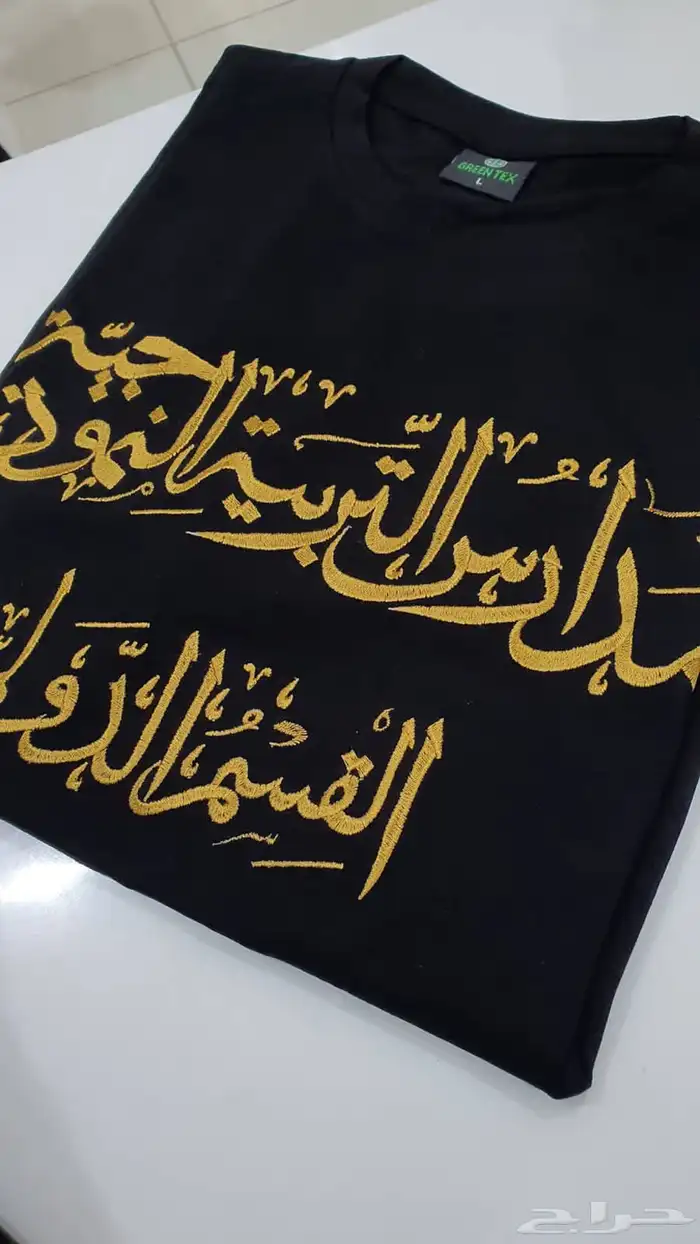 GREENTEX
L
مدارس التربية النموذجية
القسم الدولي
حراج